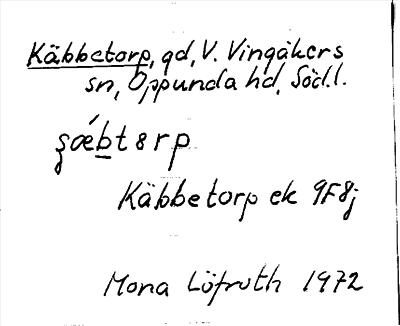 Käbbetorp, gd, V. Vingåkers
sn, Oppunda hd, Södl.
ʂǽb̲t8rp
Käbbetorp ek 9F8j
Mona Löfroth 1972